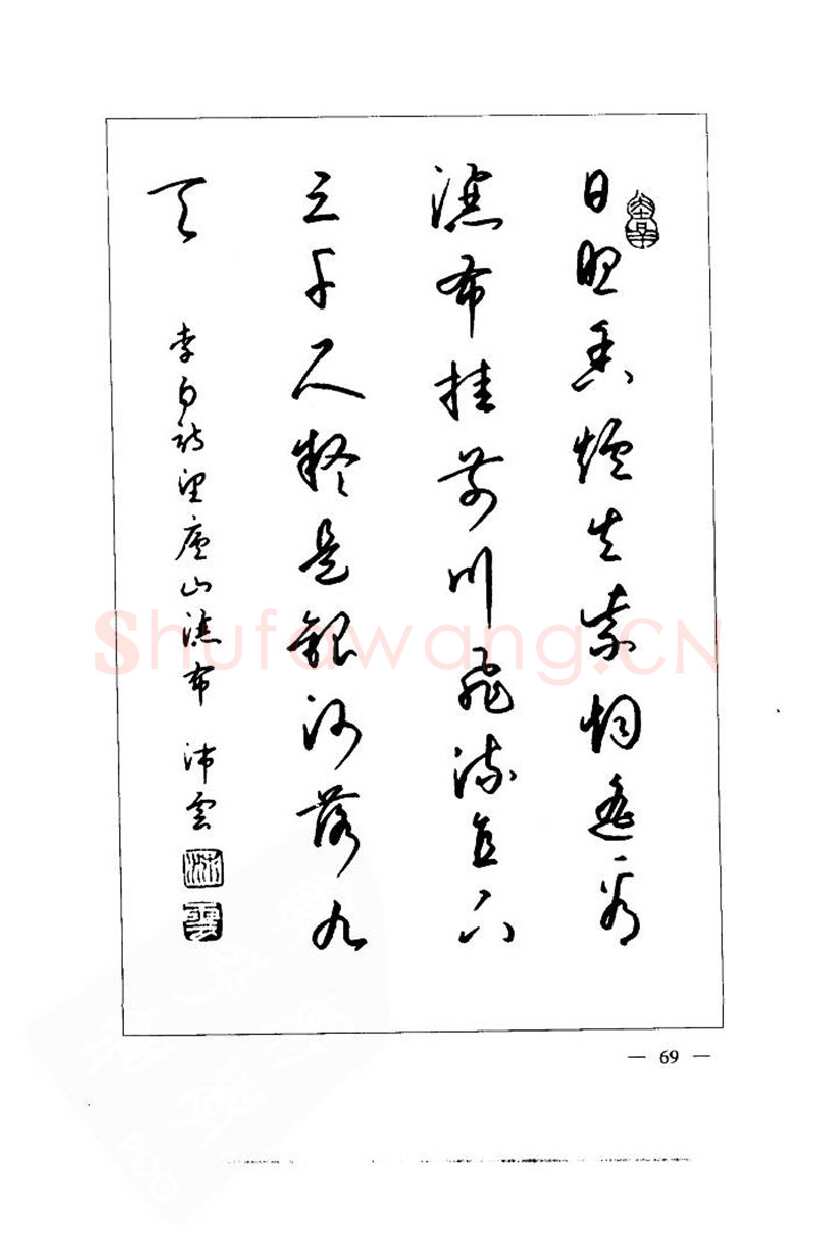 日照香炉生紫烟遥看
瀑布挂前川飛流直下
三千尺疑是銀河落九
天
李白詩望廬山瀑布 沛雲
沛
雲
Shufawang.CN
— 69 —